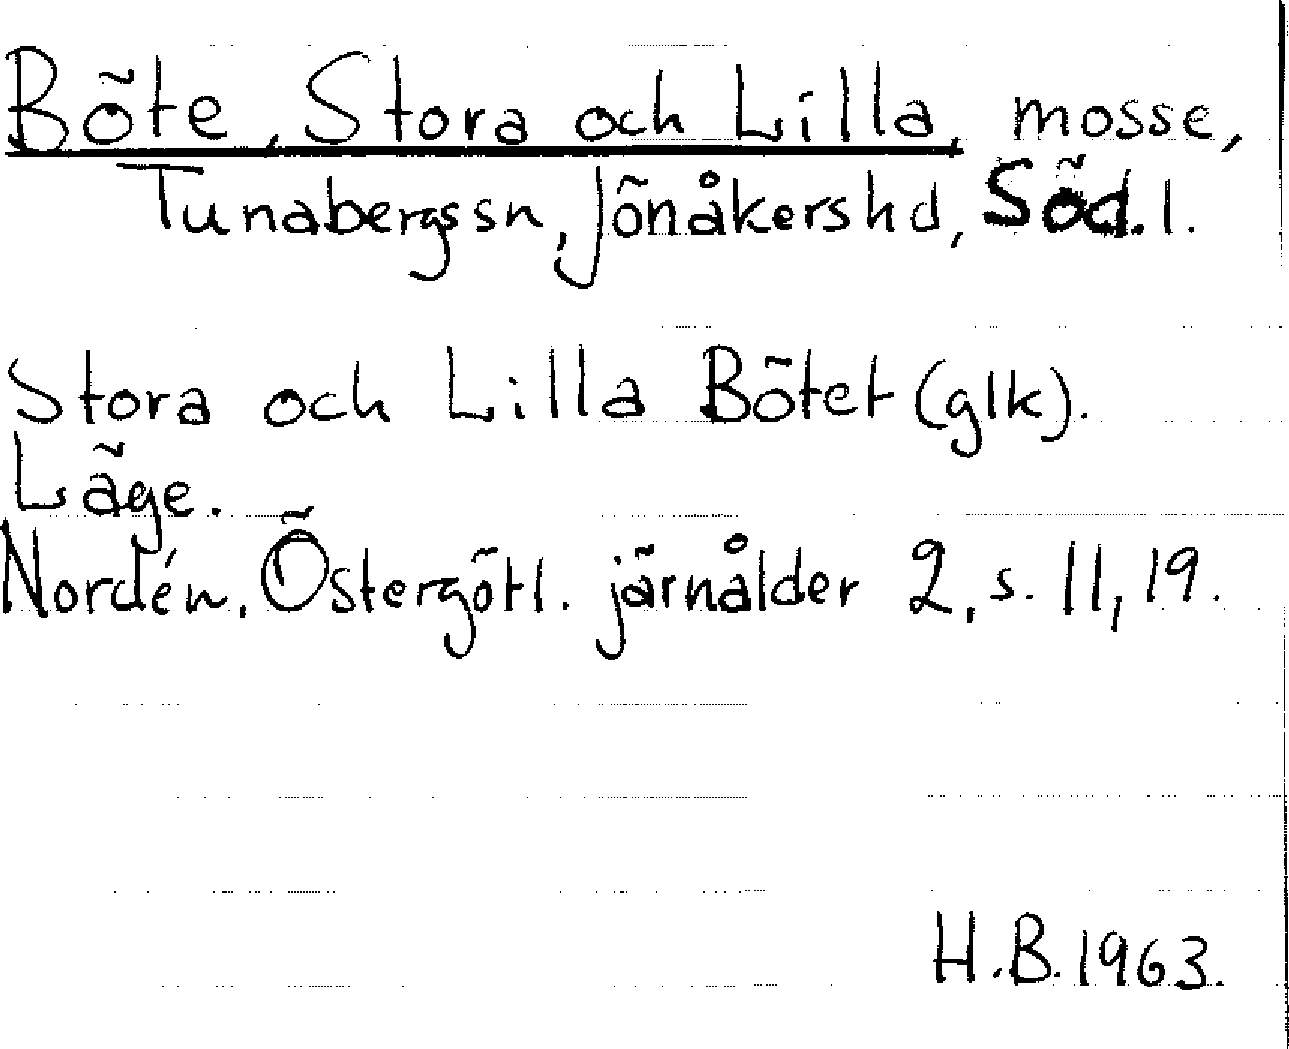 Böte, Stora och Lilla, mosse,
Tunabergssn, Jönåkershd, Söd.l.
Stora och Lilla Bötet (glk).
Läge.
Nordén, Östergötl. järnålder 2, s. 11, 19.
H.B. 1963.